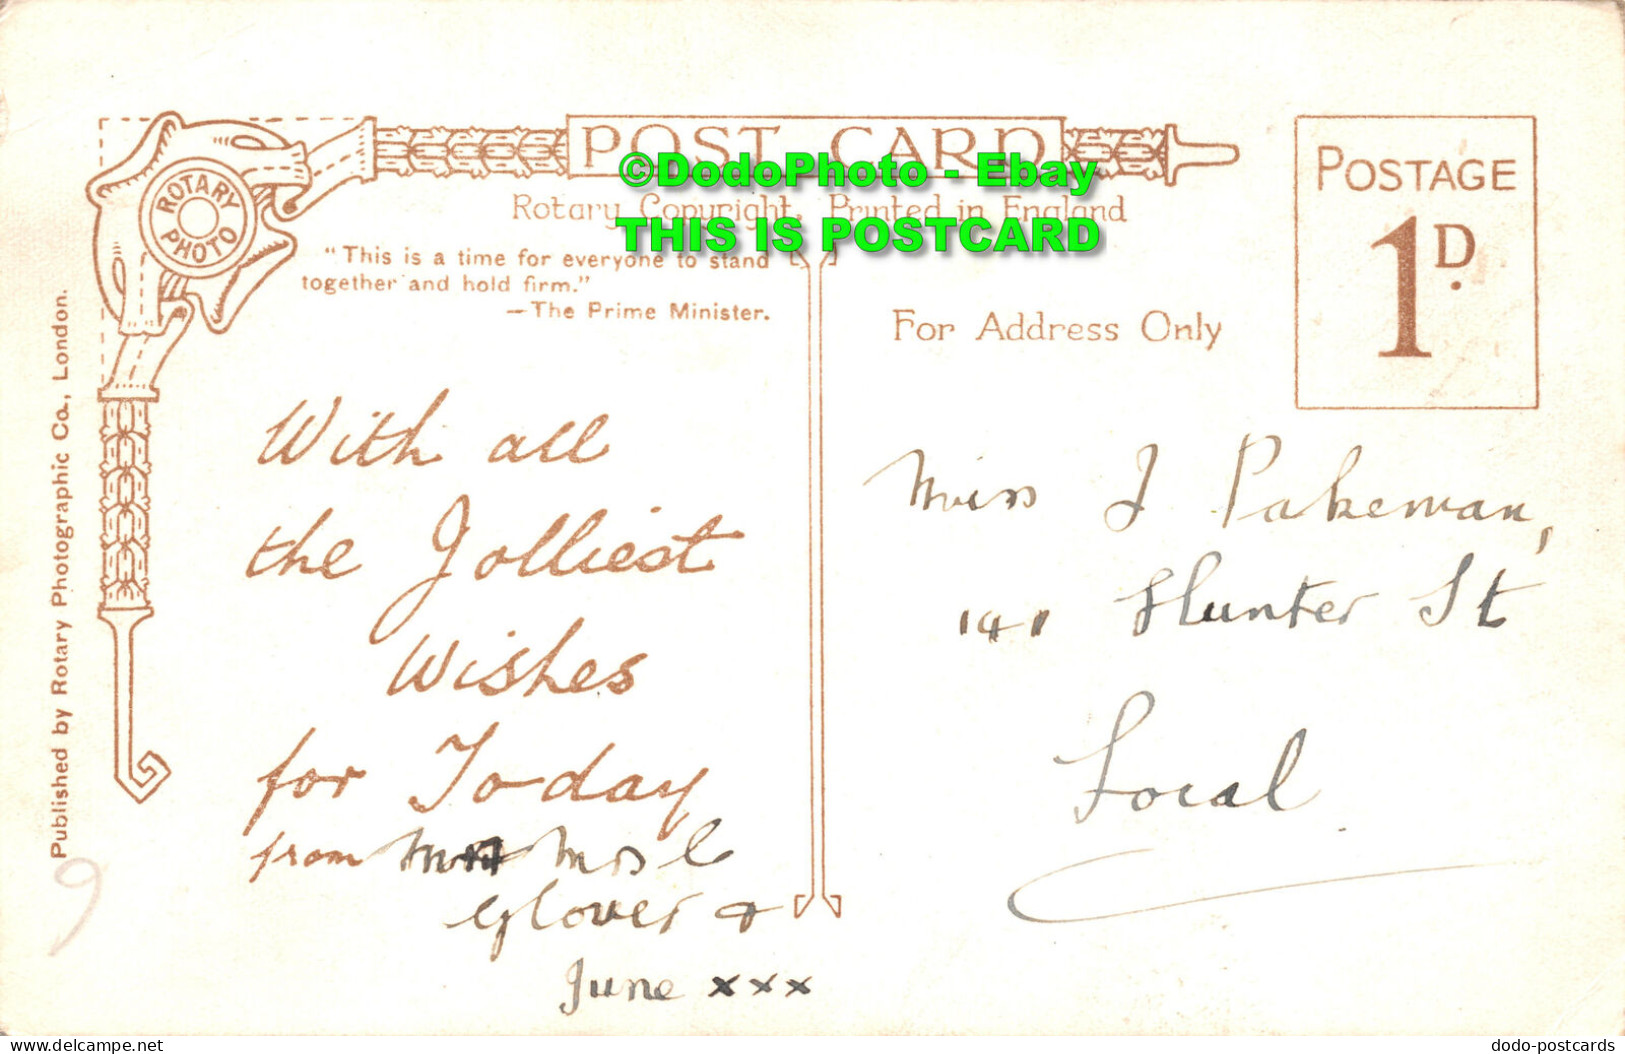 POST CARD
©DodoPhoto - Ebay
THIS IS POSTCARD
Rotary Copyright, Printed in England
ROTARY PHOTO
"This is a time for everyone to stand
together and hold firm."
—The Prime Minister.
Published by Rotary Photographic Co., London.
With all
the Jolliest
Wishes
for Today
from Mrs C
Glover &
June xxx
For Address Only
POSTAGE
1D.
Miss J Pakeman,
141 Hunter St
Local
9
dodo-postcards
delcampe.net